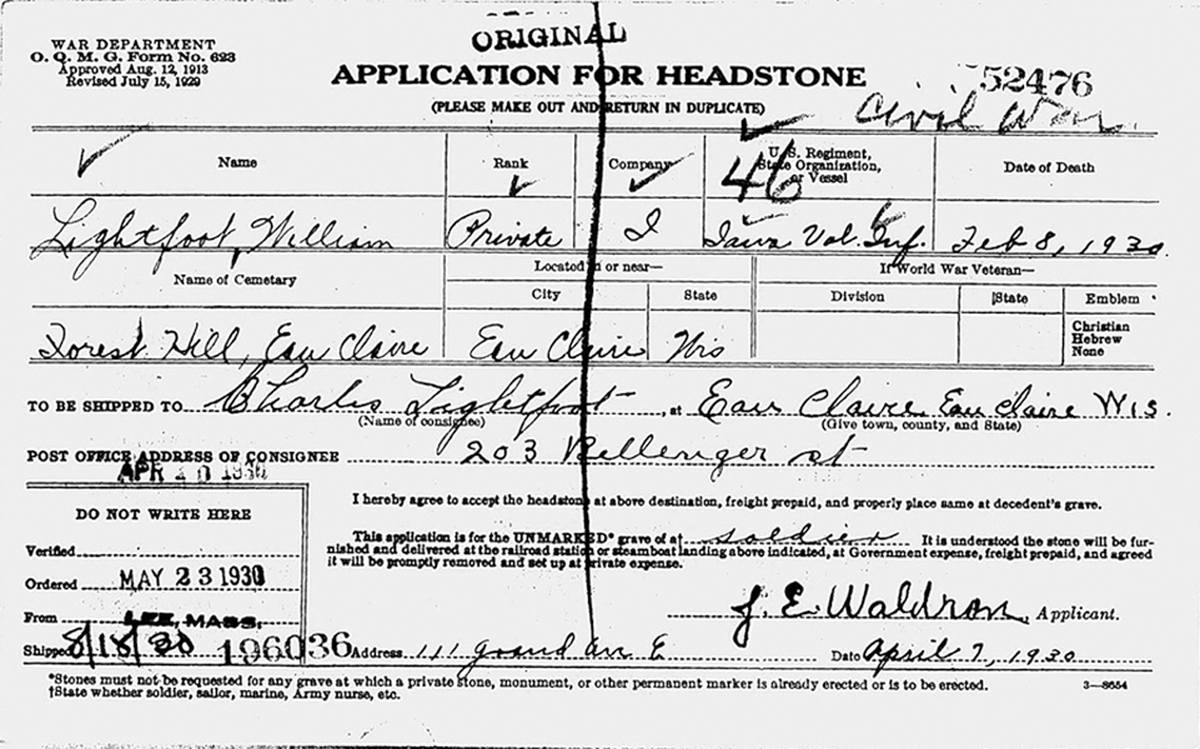 ORIGINAL
WAR DEPARTMENT
O. Q. M. G. Form No. 623
Approved Aug. 12, 1913
Revised July 15, 1929
APPLICATION FOR HEADSTONE
(PLEASE MAKE OUT AND RETURN IN DUPLICATE)
52476
Civil War.
Name
Rank
Company
U. S. Regiment,
State Organization,
or Vessel
46
Date of Death
Lightfoot, William
Private
I
Iowa Vol. Inf.
Feb 8, 1930.
Name of Cemetary
Located in or near—
If World War Veteran—
City
State
Division
State
Emblem
Christian
Hebrew
None
Forest Hill, Eau Claire
Eau Claire
Wis
TO BE SHIPPED TO Charles Lightfoot, at Eau Claire Eau Claire Wis.
(Name of consignee)
(Give town, county, and State)
POST OFFICE ADDRESS OF CONSIGNEE 203 Bellenger st
APR 10 1930
I hereby agree to accept the headstone at above destination, freight prepaid, and properly place same at decedent's grave.
This application is for the UNMARKED* grave of a† soldier. It is understood the stone will be fur-
nished and delivered at the railroad station or steamboat landing above indicated, at Government expense, freight prepaid, and agreed
it will be promptly removed and set up at private expense.
DO NOT WRITE HERE
Verified
Ordered MAY 23 1930
From LEE, MASS.
Shipped 8/18/30 196036
J. E. Waldron, Applicant.
Address 111 Grand Ave E
Date April 7, 1930
*Stones must not be requested for any grave at which a private stone, monument, or other permanent marker is already erected or is to be erected.
†State whether soldier, sailor, marine, Army nurse, etc.
3—8654